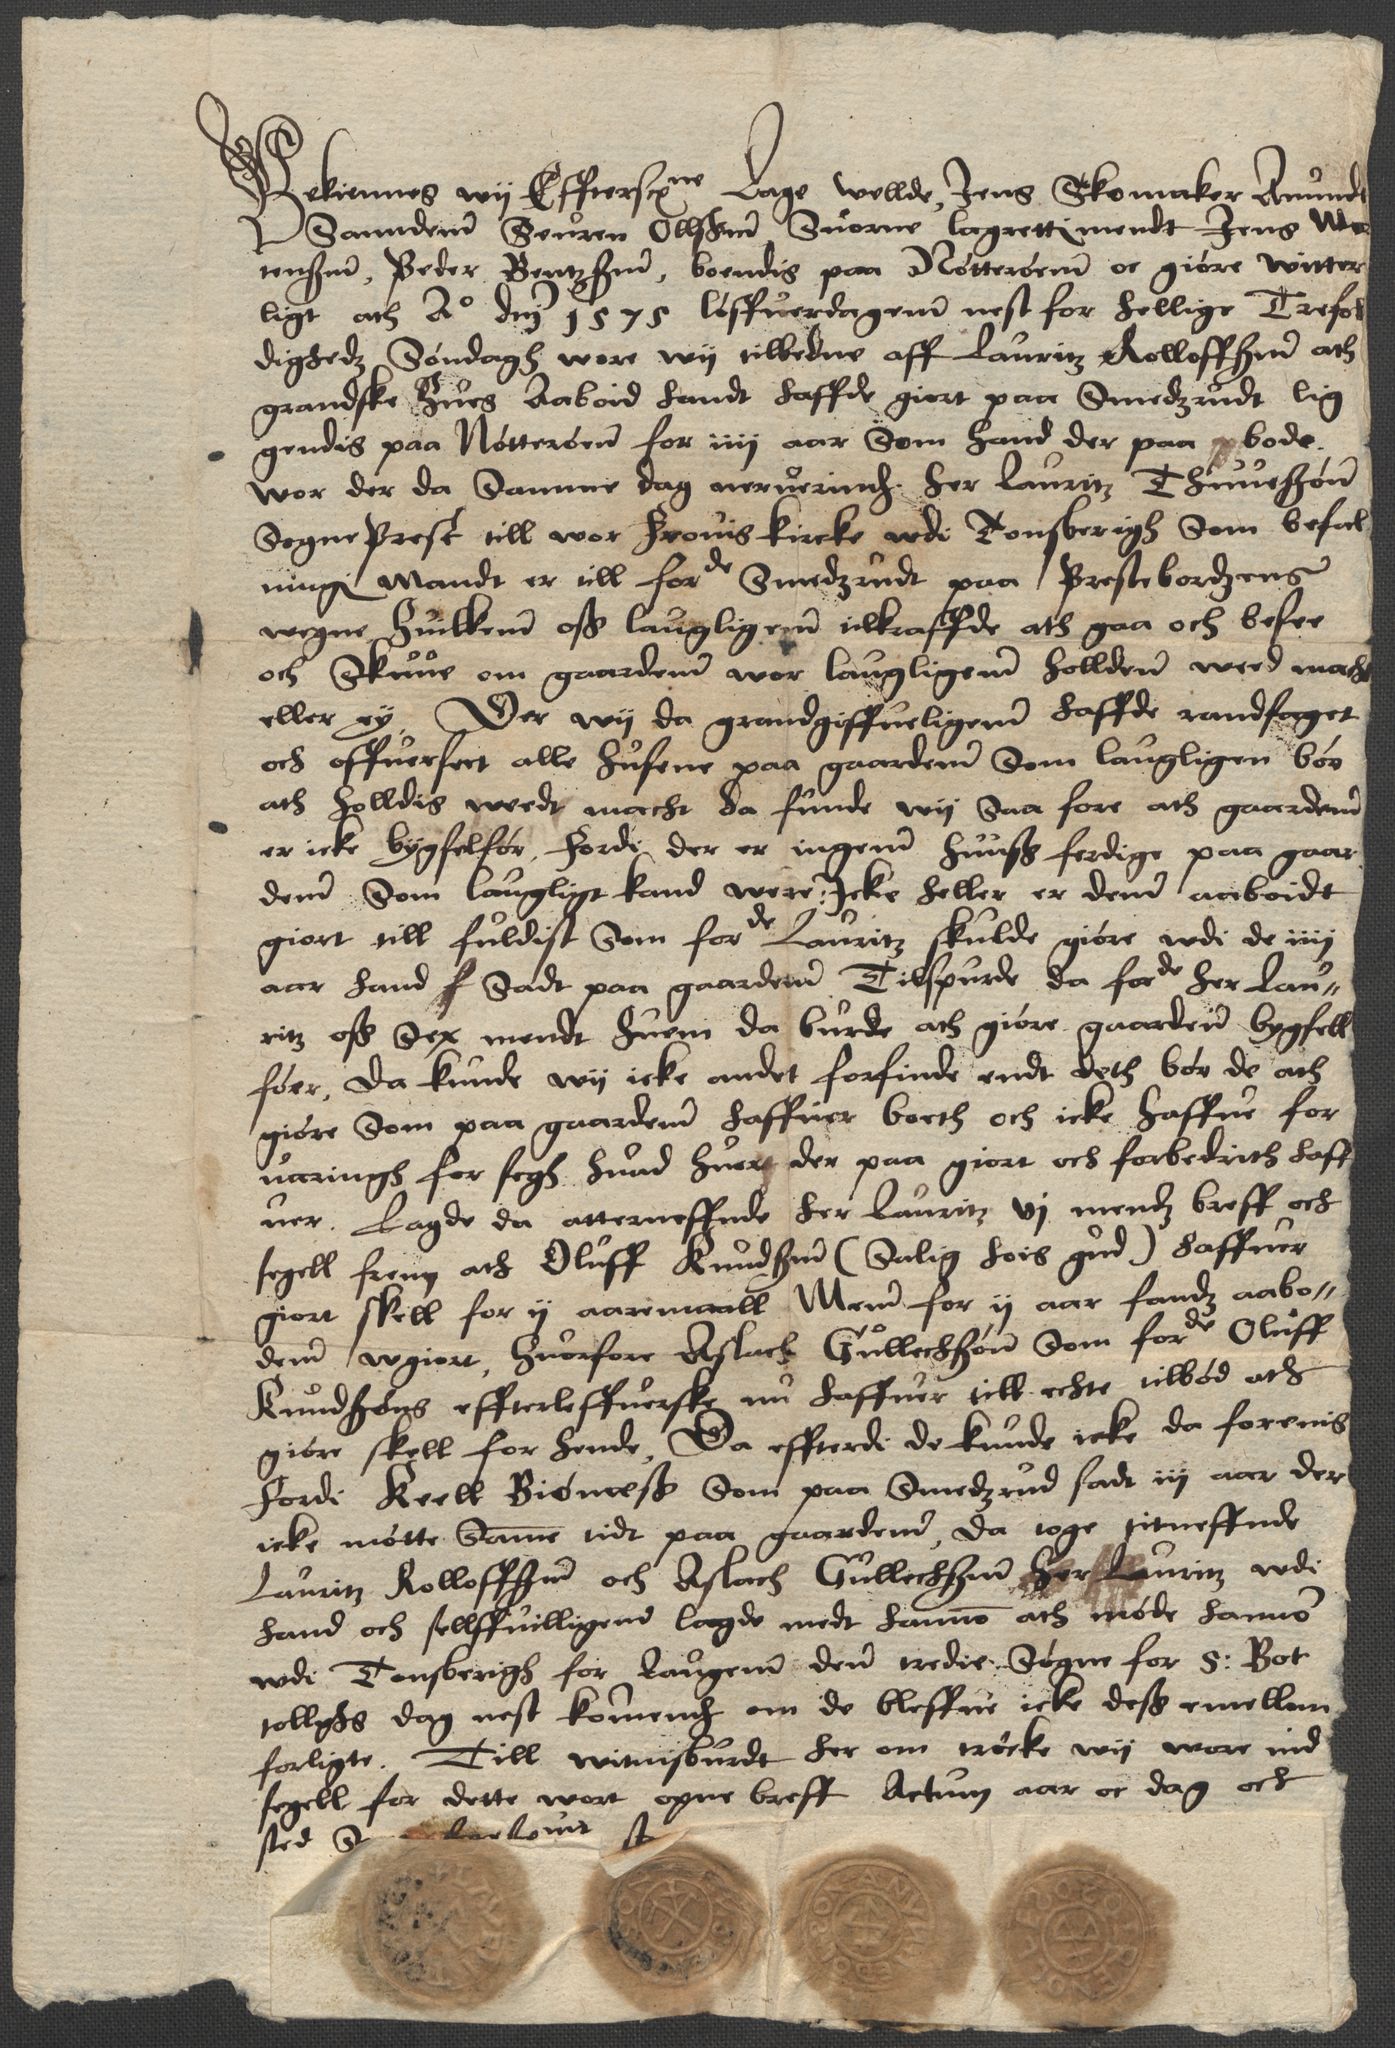 Bekiennes wij Effterscrne Lage wellde, Jens Skomaker Amundt
Sanndenn Seuren Ollszenn Suorne lagrettismendt Jens Mor
tenszenn, Peder Bentzszenn, boendis paa Nótteróenn oc gióre witter
ligt ath Ao dnj 1575 lóffuerdagenn nest for hellige Trefol
dighedz Sóndagh wore wij tilbedne aff Lauritz Rolloffszenn ath
grandske Hues Aaboid handt haffde giort paa Smedzrudt lig
gendis paa Nótteróenn for iiij aar Som hand der paa bode.
wor der da Samme dag neruerindh. her Lauritz Thuueszónn
SognePrest till wor Frouis kircke wdi Tonsberigh Som befal
nings Mandt er till forde Smedzrudt paa Prestebordzens
wegne Huilkenn osz laugligenn tilkraffde ath gaa och besee
och Skuue om gaardenn wor laugligenn holldenn weed macht
eller ey, Der wij da grandgiffueligenn haffde randsaget
och offuerseet alle Husene paa gaardenn Som laugligen bór
ath holldis weedt macht da funde wij Saa fore ath gaardenn
er icke bygselfór, Fordi der er ingenn Huusz ferdige paa gaar
denn Som laugligt kand were: Icke heller er denn aaboidt
giort till fuldist Som forde Lauritz skulde gióre wdi de iiij
aar hand Sadt paa gaardenn Tilspurde da forde her Lau〃
ritz osz Sex mendt Huem da burde ath gióre gaardenn bygsell
fóer, Da kunde wij icke andet forfinde endt deth bór de ath
gióre Som paa gaardenn haffuer boeth och icke Haffue for
uaringh for segh Huad Huer der paa giort och forbedrith haff
uer. Lagde da atterneffnde her Lauritz vj mendz breff och
segell frem ath Oluff Knudszenn (Salig hois gud) haffuer
giort skell for ij aaremaall Menn for ij aar handz aabo〃
denn wgiort, Huorfore Aslach Gullechszónn Som forde Oluff
Knudszóns effterleffuerske nu haffuer till echte tilbód ath
gióre skell for hende, Da effterdi de kunde icke da forenis
Fordi Keell Biórnelsz Som paa Smedzrud sadt iij aar der
icke mótte Samme tidt paa gaardenn, Da toge titneffnde
Lauritz Rolloffszenn och Aslach Gullechszenn Her Lauritz wdi
hand och sellffuilligenn lagde medt hannom ath móde hannom
wdi Tonsberigh for Laugenn denn tredie Sógne for S: Bot
tollghs dag nest komendh om de bleffue icke desz emellom
forligte. Till witnisburdt her om trócke wij wore ind
segell for dette wort opne breff Actum aar oc dag och
sted